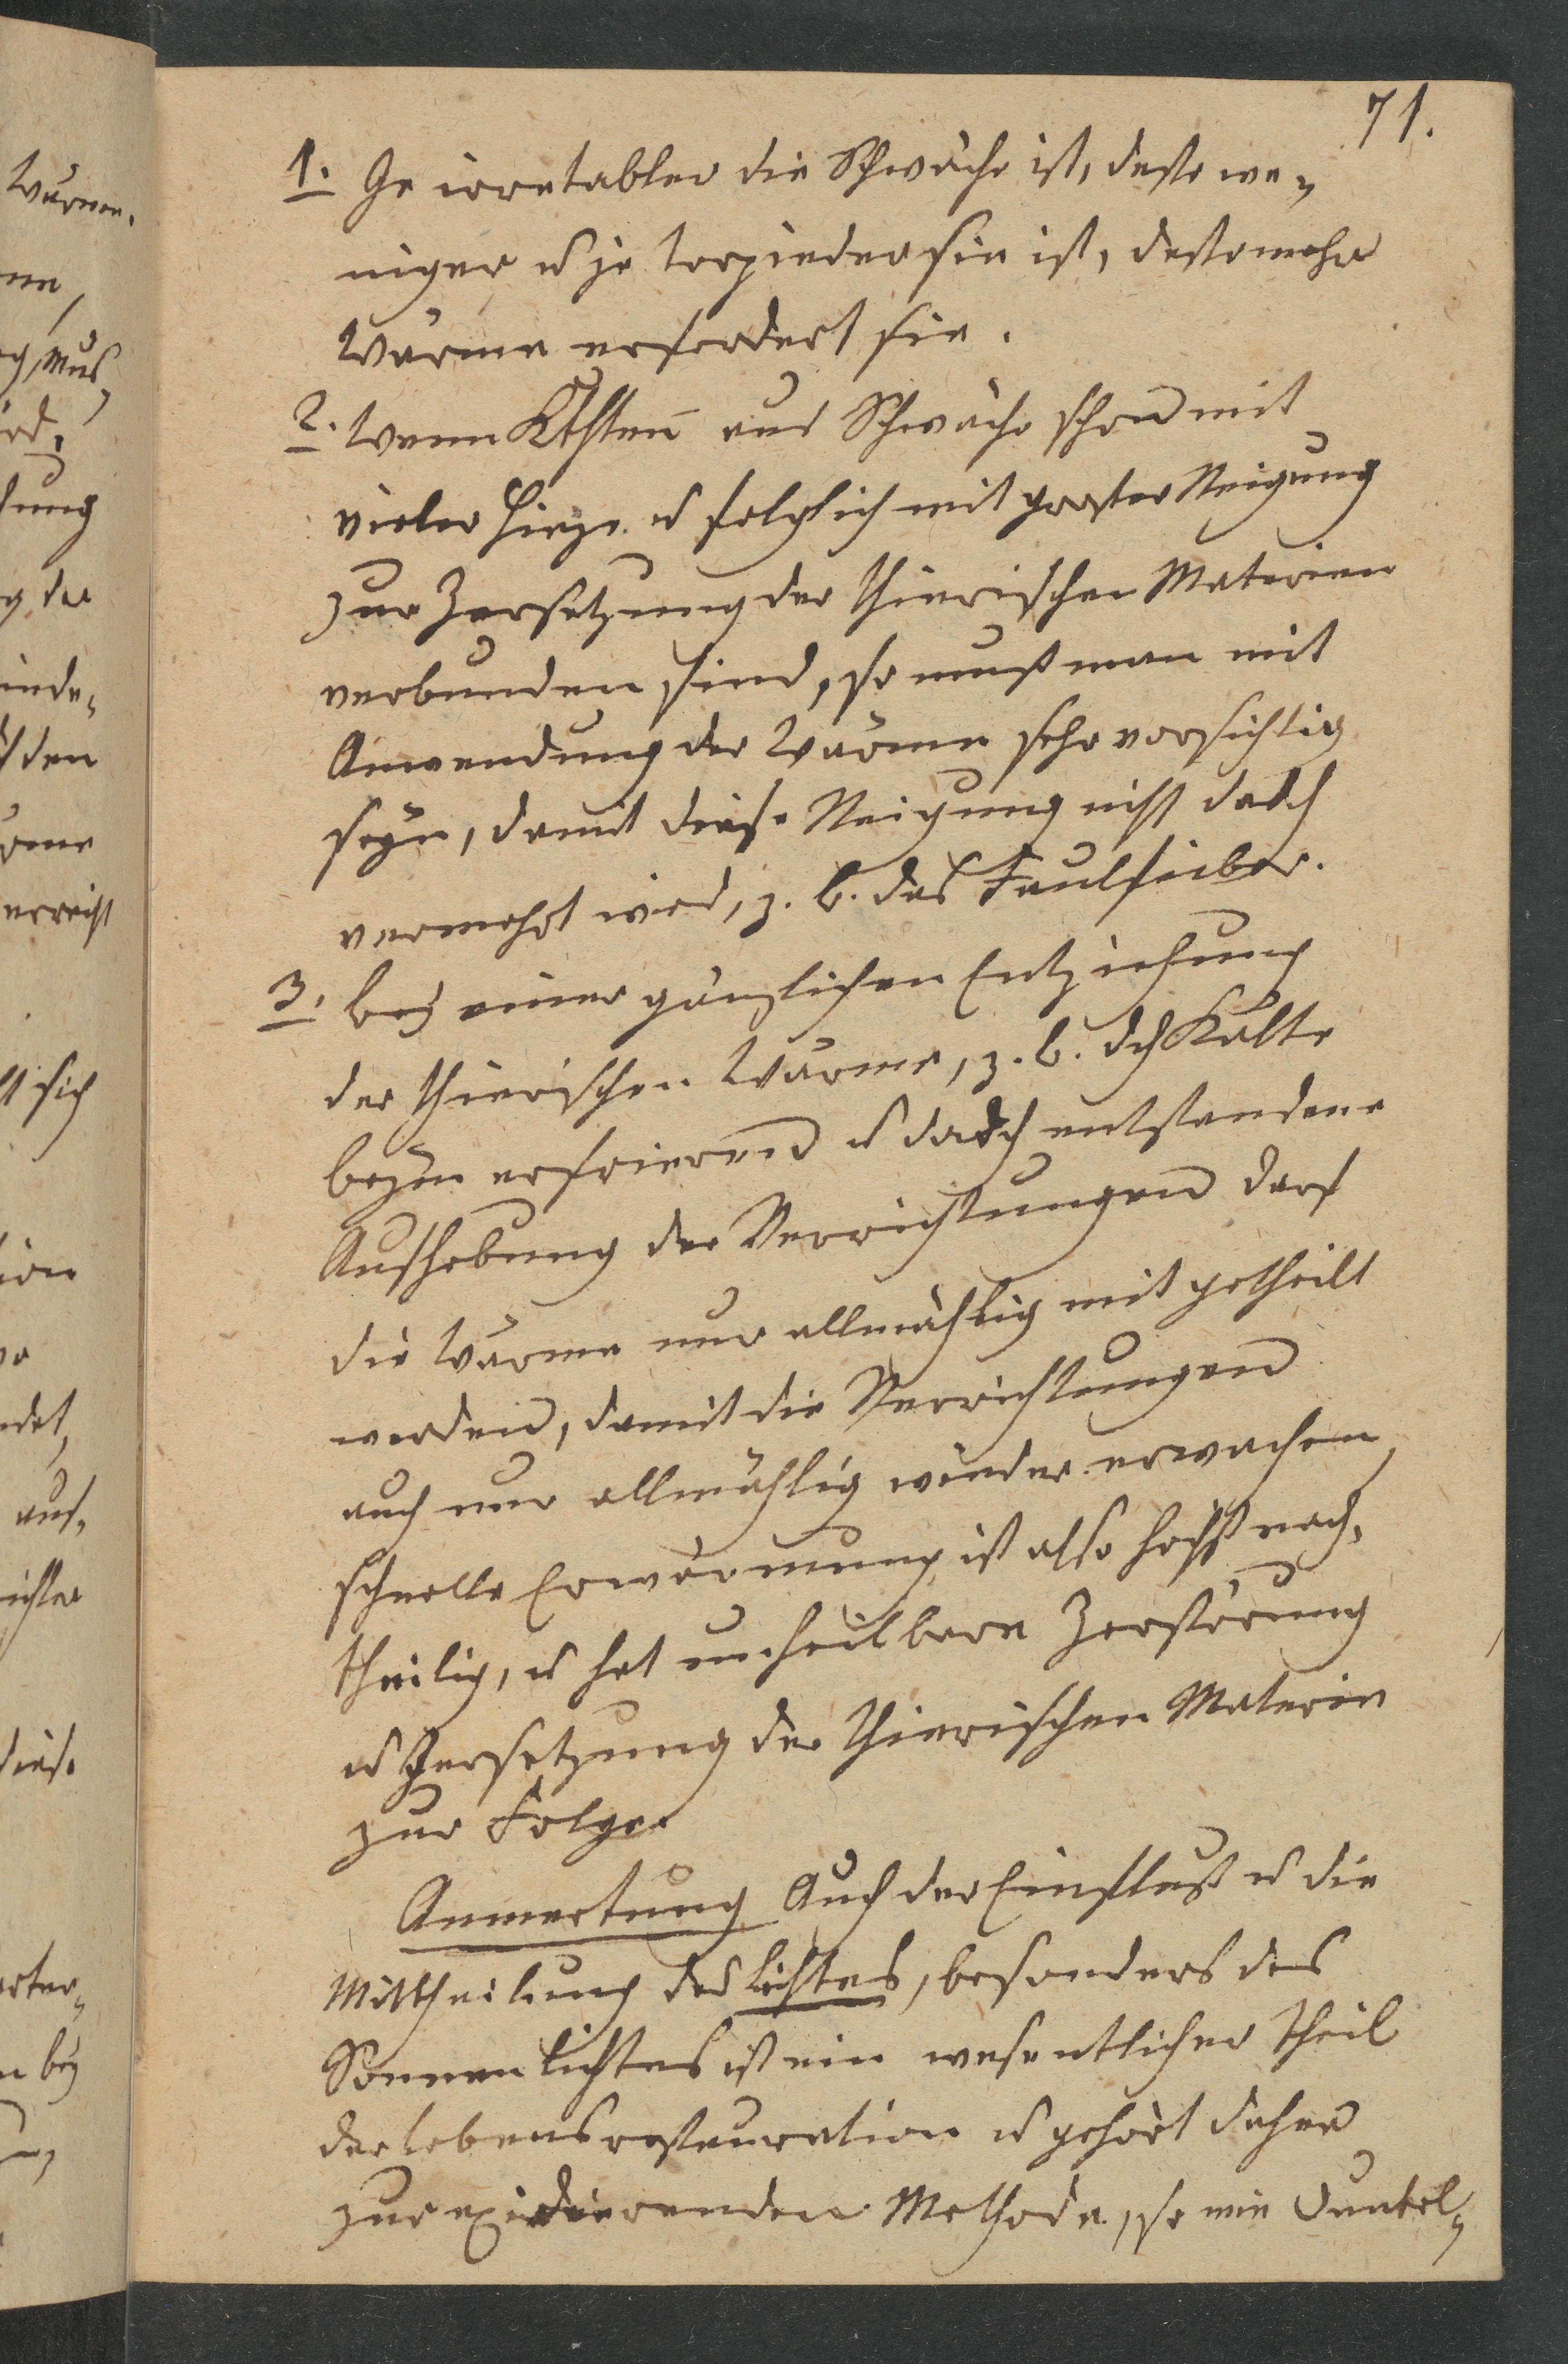 71.
1. Je irretabler die Schwäche ist, desto we„
niger u je torpieder sie ist, desto mehr
Wärme erfordert sie.
2. Wenn Kkhten aus Schwäche schon mit
vieler Hieze u folglich mit groster Neigung
zur Zersetzung der thierischen Materien
verbunden sind, so muß man mit
Anwendung der Wärme sehr vorsichtig
seÿn, damit diese Neigung nicht dadch
vermehrt wird, z. b. das Faulfieber.
3. beÿ einer gänzlichen Entziehung
der thierischen Wärme, z. b. dch Kälte
beÿm erfrieren u dadch entstandene
Aufhebung der Verrichtungen darf
die Wärme nur allmählig mit getheilt
werden, damit die Verrichtungen
auch nur allmählig wieder erwachen,
schnelle Erwärmung ist also hochst nach„
theilig, u hat unheilbare Zerstörung
u Zersetzung der thierischen Materie
zur Folge.
Anmerkung Auch der Einfluß u die
Mittheilung des Lichtes, besonders des
Sonnenlichtes ist ein wesentlicher Theil
der Lebensrestauration u gehört daher
zur exidierenden Methode, so wie Dunkel„